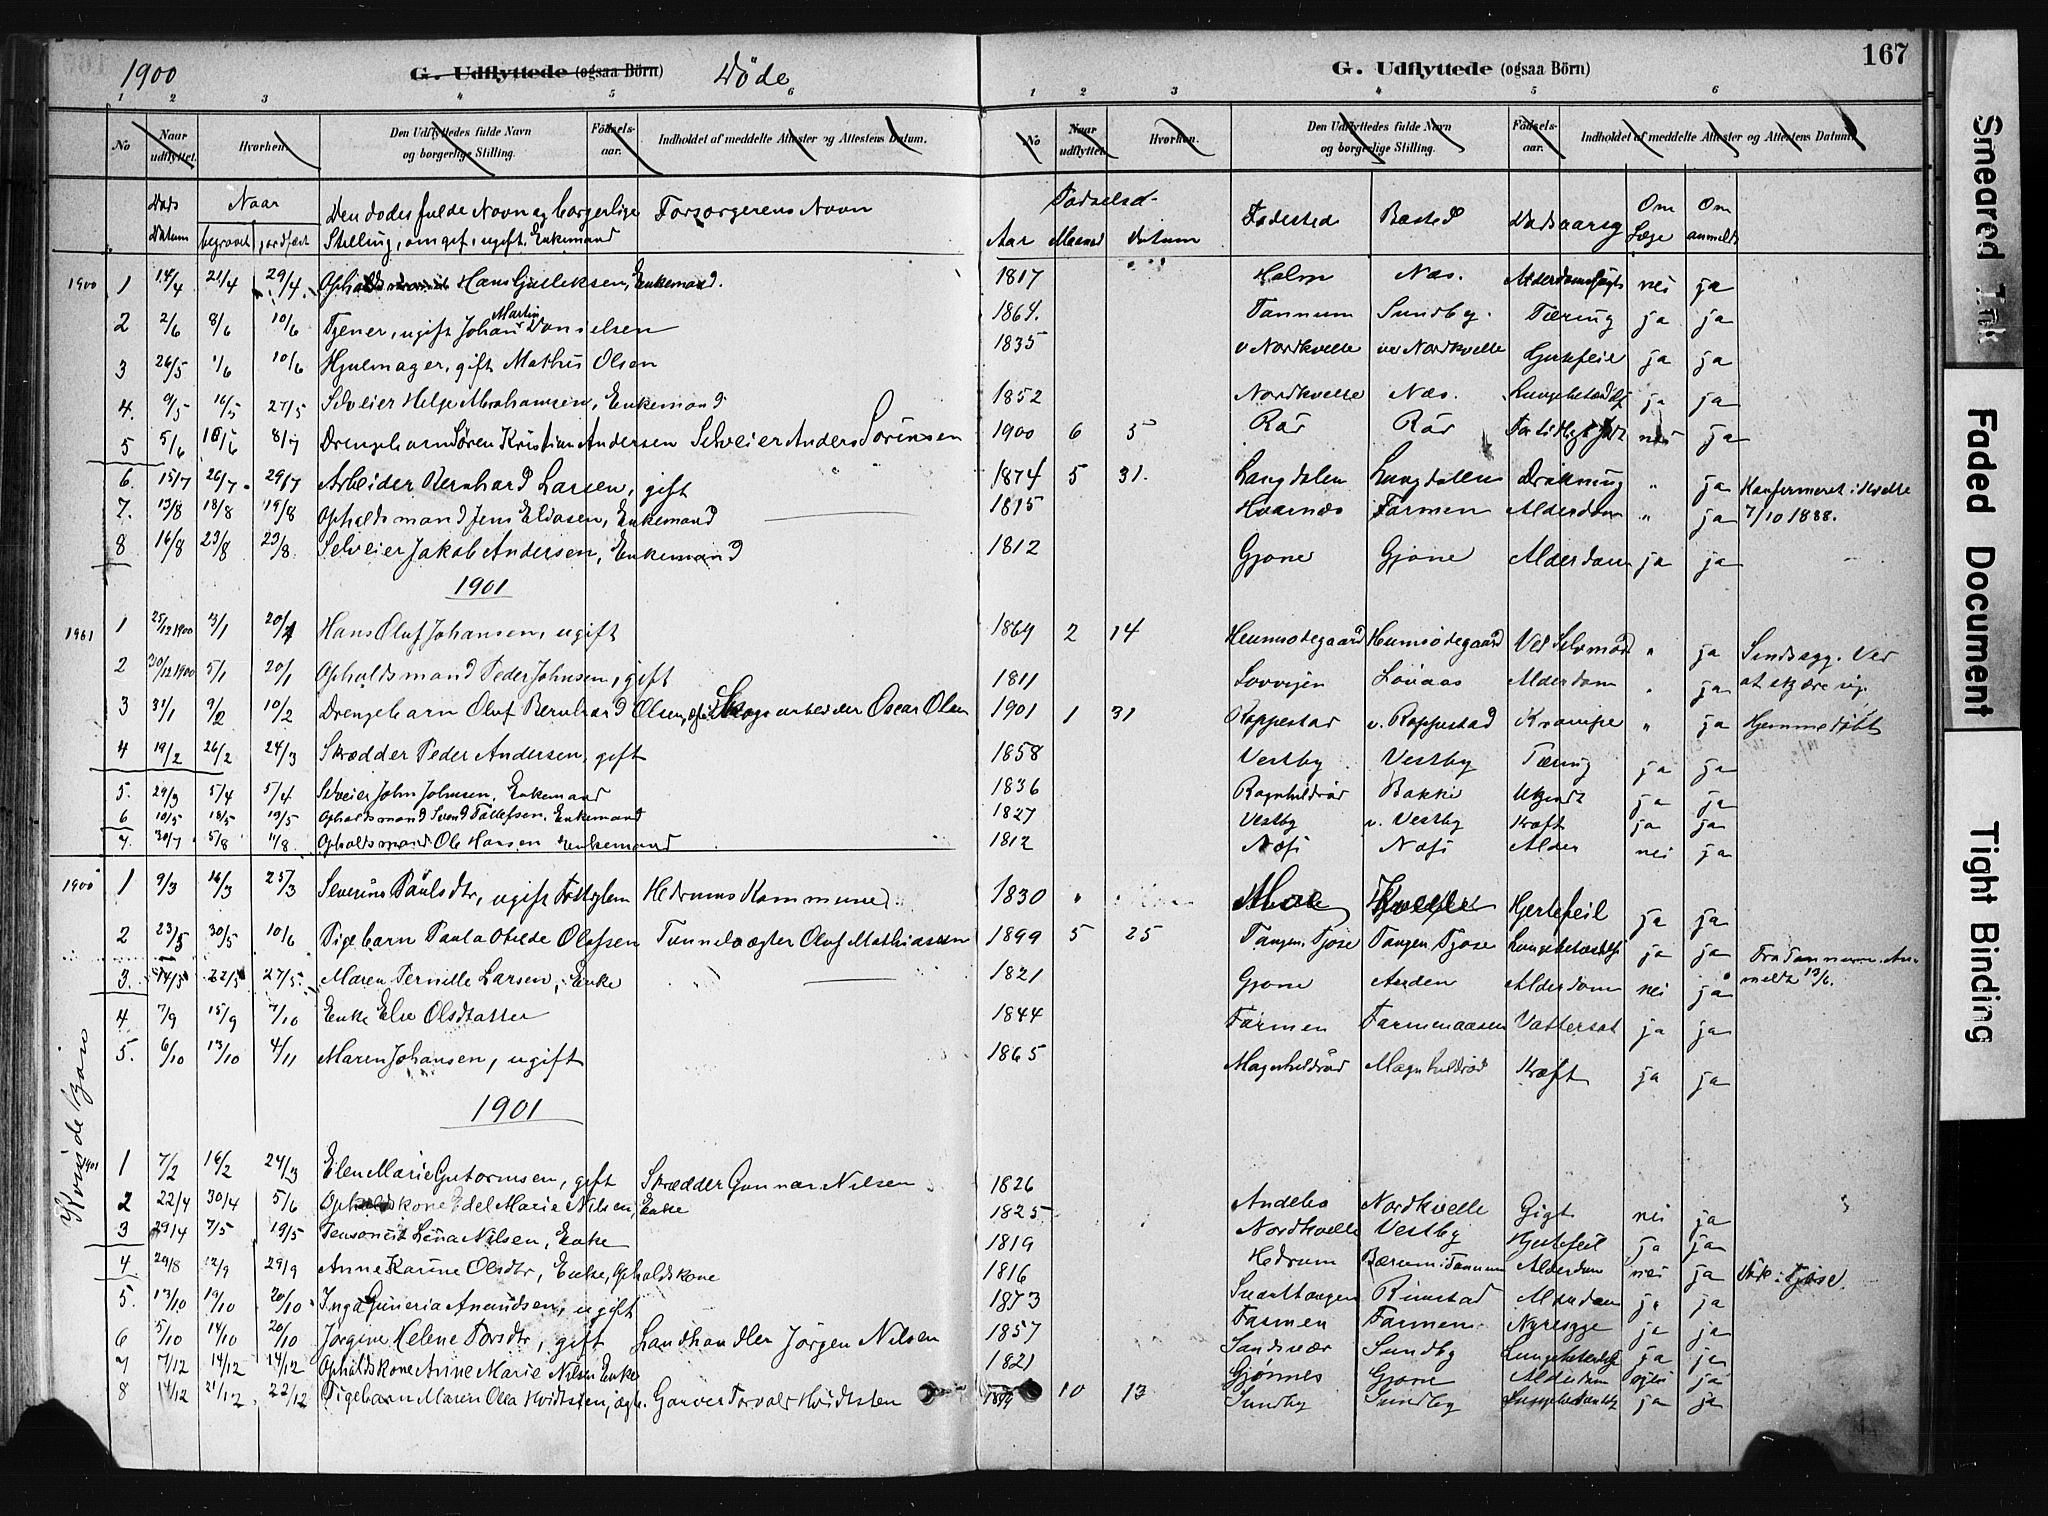 1900 G. Udflyttede (ogsaa Börn) Døde
1 2 3 4 5 6
No Naar udflyttet. Hvorhen. Den Udflyttedes fulde Navn og borgerlige Stilling. Födsels-aar. Indholdet af meddelte Attester og Attestens Datum.
Døds Datum Naar begravet jordfæst Den dødes fulde Navn og borgerlige Stilling, om gift, ugift, Enkemand Forsørgerens Navn
1900 1 14/4 21/4 29/4 Opholdsmand Hans Gulleksen, Enkemand.
2 2/6 8/6 10/6 Tjener, ugift Johan Martin Danielsen
3 26/5 1/6 10/6 Hjulmager, gift Mathis Olsen
4. 9/5 16/5 27/5 Selveier Helge Abrahamsen, Enkemand
5 5/6 8/7 Drengebarn Sören Kristian Andersen Selveier Anders Sörensen
6. 15/7 26/7 29/7 Arbeider Bernhard Larsen, gift
7. 13/8 18/8 19/8 Opholdsmand Jens Eliasen, Enkemand
8 16/8 23/8 23/8 Selveier Jakob Andersen, Enkemand
1901
1901 1 25/12 1900 3/1 20/1 Hans Oluf Johansen, ugift
2 30/12 1900 5/1 20/1 Opholdsmand Peder Johnsen, gift
3 31/1 9/2 10/2 Drengebarn Oluf Bernhard Olsen, Skogsarbeider Oscar Olsen
4 19/2 26/2 24/3 Skrædder Peder Andersen, gift
5. 29/3 5/4 5/4 Selveier John Johnsen, Enkemand
6 10/5 18/5 19/5 Opholdsmand Svend Tollefsen, Enkemand
7. 30/7 5/8 11/8 Opholdsmand Ole Hansen Enkemand
1900 1 9/3 16/3 25/3 Severine Paulsdtr, ugift Hedrums Kommune
2 23/5 30/5 10/6 Pigebarn Paula Otilde Olafsen Tunnelvagter Oluf Mathiassen
3. 14/5 22/5 27/5 Maren Pernille Larsen, Enke
4 7/9 15/9 7/10 Enke Else Olsdatter
5. 6/10 13/10 4/11 Maren Johansen, ugift
1901
Kvindekjøn
1901 1 7/2 16/2 24/3 Elen Marie Gutormsen, gift Skrædder Gunnar Nilsen
2 22/4 30/4 5/6 Opholdskone Edel Marie Nilsen, Enke
3 29/4 7/5 19/5 Lena Nilsen, Enke
4 29/8 12/9 29/9 Anne Karine Olsdtr, Enke, Opholdskone
5. 13/10 19/10 20/10 Inga Guneria Amundsen, ugift
6 5/10 14/10 20/10 Jörgine Helene Torsdtr, gift Landhandler Jörgen Nilsen
7 7/12 14/12 14/12 Opholdskone Anne Marie Nilsen Enke
8 14/12 21/12 22/12 Pigebarn Maren Olea Kvidtsten, Garver Torvald Kvidtsten
167
G. Udflyttede (ogsaa Börn)
1 2 3 4 5 6
No Naar udflyttet Hvorhen. Den Udflyttedes fulde Navn og borgerlige Stilling. Födsels-aar. Indholdet af meddelte Attester og Attestens Datum.
Fødselsd- Aar Maaned Datum Fødested Bosted Dødsaarsag Om Læge Om anmeldt
1817 Holm Næs. Alderdoms nei ja
1864. Tannum Sundby. Tæring ja ja
1835 v Nordkvelle Nordkvelle Hjertefeil ja ja
1852 Nordkvelle Næs. Lungebetændelse ja ja
1900 6 5 Rår Rår nei ja
1874 5 31. Langdalen Langdalen Drukning " ja Konfirmeret i Kvelle
1815 Hvarnæs Farmen Alderdom " ja 7/10 1888.
1812 Gjone Gjone Alderdom ja ja
1869 2 14 Hemsødegaard Ved Selvmord " ja Sindssyg. Ved
1811 Alderdom " ja at skjære sig.
1901 1 31 Roppestad v. Roppestad Krampe " ja Hjemmedøbt
1858 Vestby Vestby Tæring ja ja
1836 Ragnhildrød Bakke Ukjendt ja ja
1827 Vestby v. Vestby Kræft ja ja
1812 Næss Næss Alder nei ja
1830 Moe Kvelle Hjertefeil ja ja
1899 5 25 Tangen Tjose Tangen Tjose Lungebetændelse ja ja Fra Tannum. An-
1821 Gjone Alderdom nei ja meldt 13/6.
1844 Farmen Farmenaasen Vattersot ja ja
1865 Magnhildrød Magnhildrød Kræft ja ja
1826 Andebo Nordkvelle Gigt nei ja
1825 Nordkvelle Vestby Hjertefeil ja ja
1819 Hedrum Bærum i Tannum Alderdom nei ja i Tjøse.
1816 Rimstad Alderdom ja ja
1873 Farmen Farmen Nyresyge ja ja
1857 Sandsvær Sundby Lungebetændelse ja ja
1821 Gjønnes Gjone Alderdom nei ja
1899 10 13 Sundby Sundby Lungebetændelse ja ja
Smeared Ink
Faded Document
Tight Binding